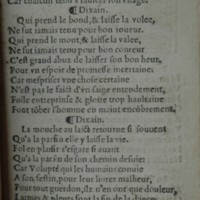 ¶ Dixain.
Qui prend le bond, & laisse la volee,
Ne fut iamais tenu pour bon ioueur.
Qui prend le mont, & laisse la valee,
Ne fut iamais tenu pour bon coureur
C'est grand abus de laisser son bon heur,
Pour vn espoir de promesse incertaine:
Car mespriser vne chose certaine
N'est pas le faict d'vn sage entendement,
Folle entreprise & gloire trop haultaine
Font tomber l'homme en maint encombrement.
¶ Dixain.
La mouche au laict retourne si souuent
Qu'a la parfin elle y laisse la vie.
Fol en plaisir s'esgare si auant
Qu'a la parfin de son chemin desuie:
Car Volupté qui les humains conuie
A son festin, pour leur liurer malheur,
Pour tout guerdon, ilz n'en ont que douleur,